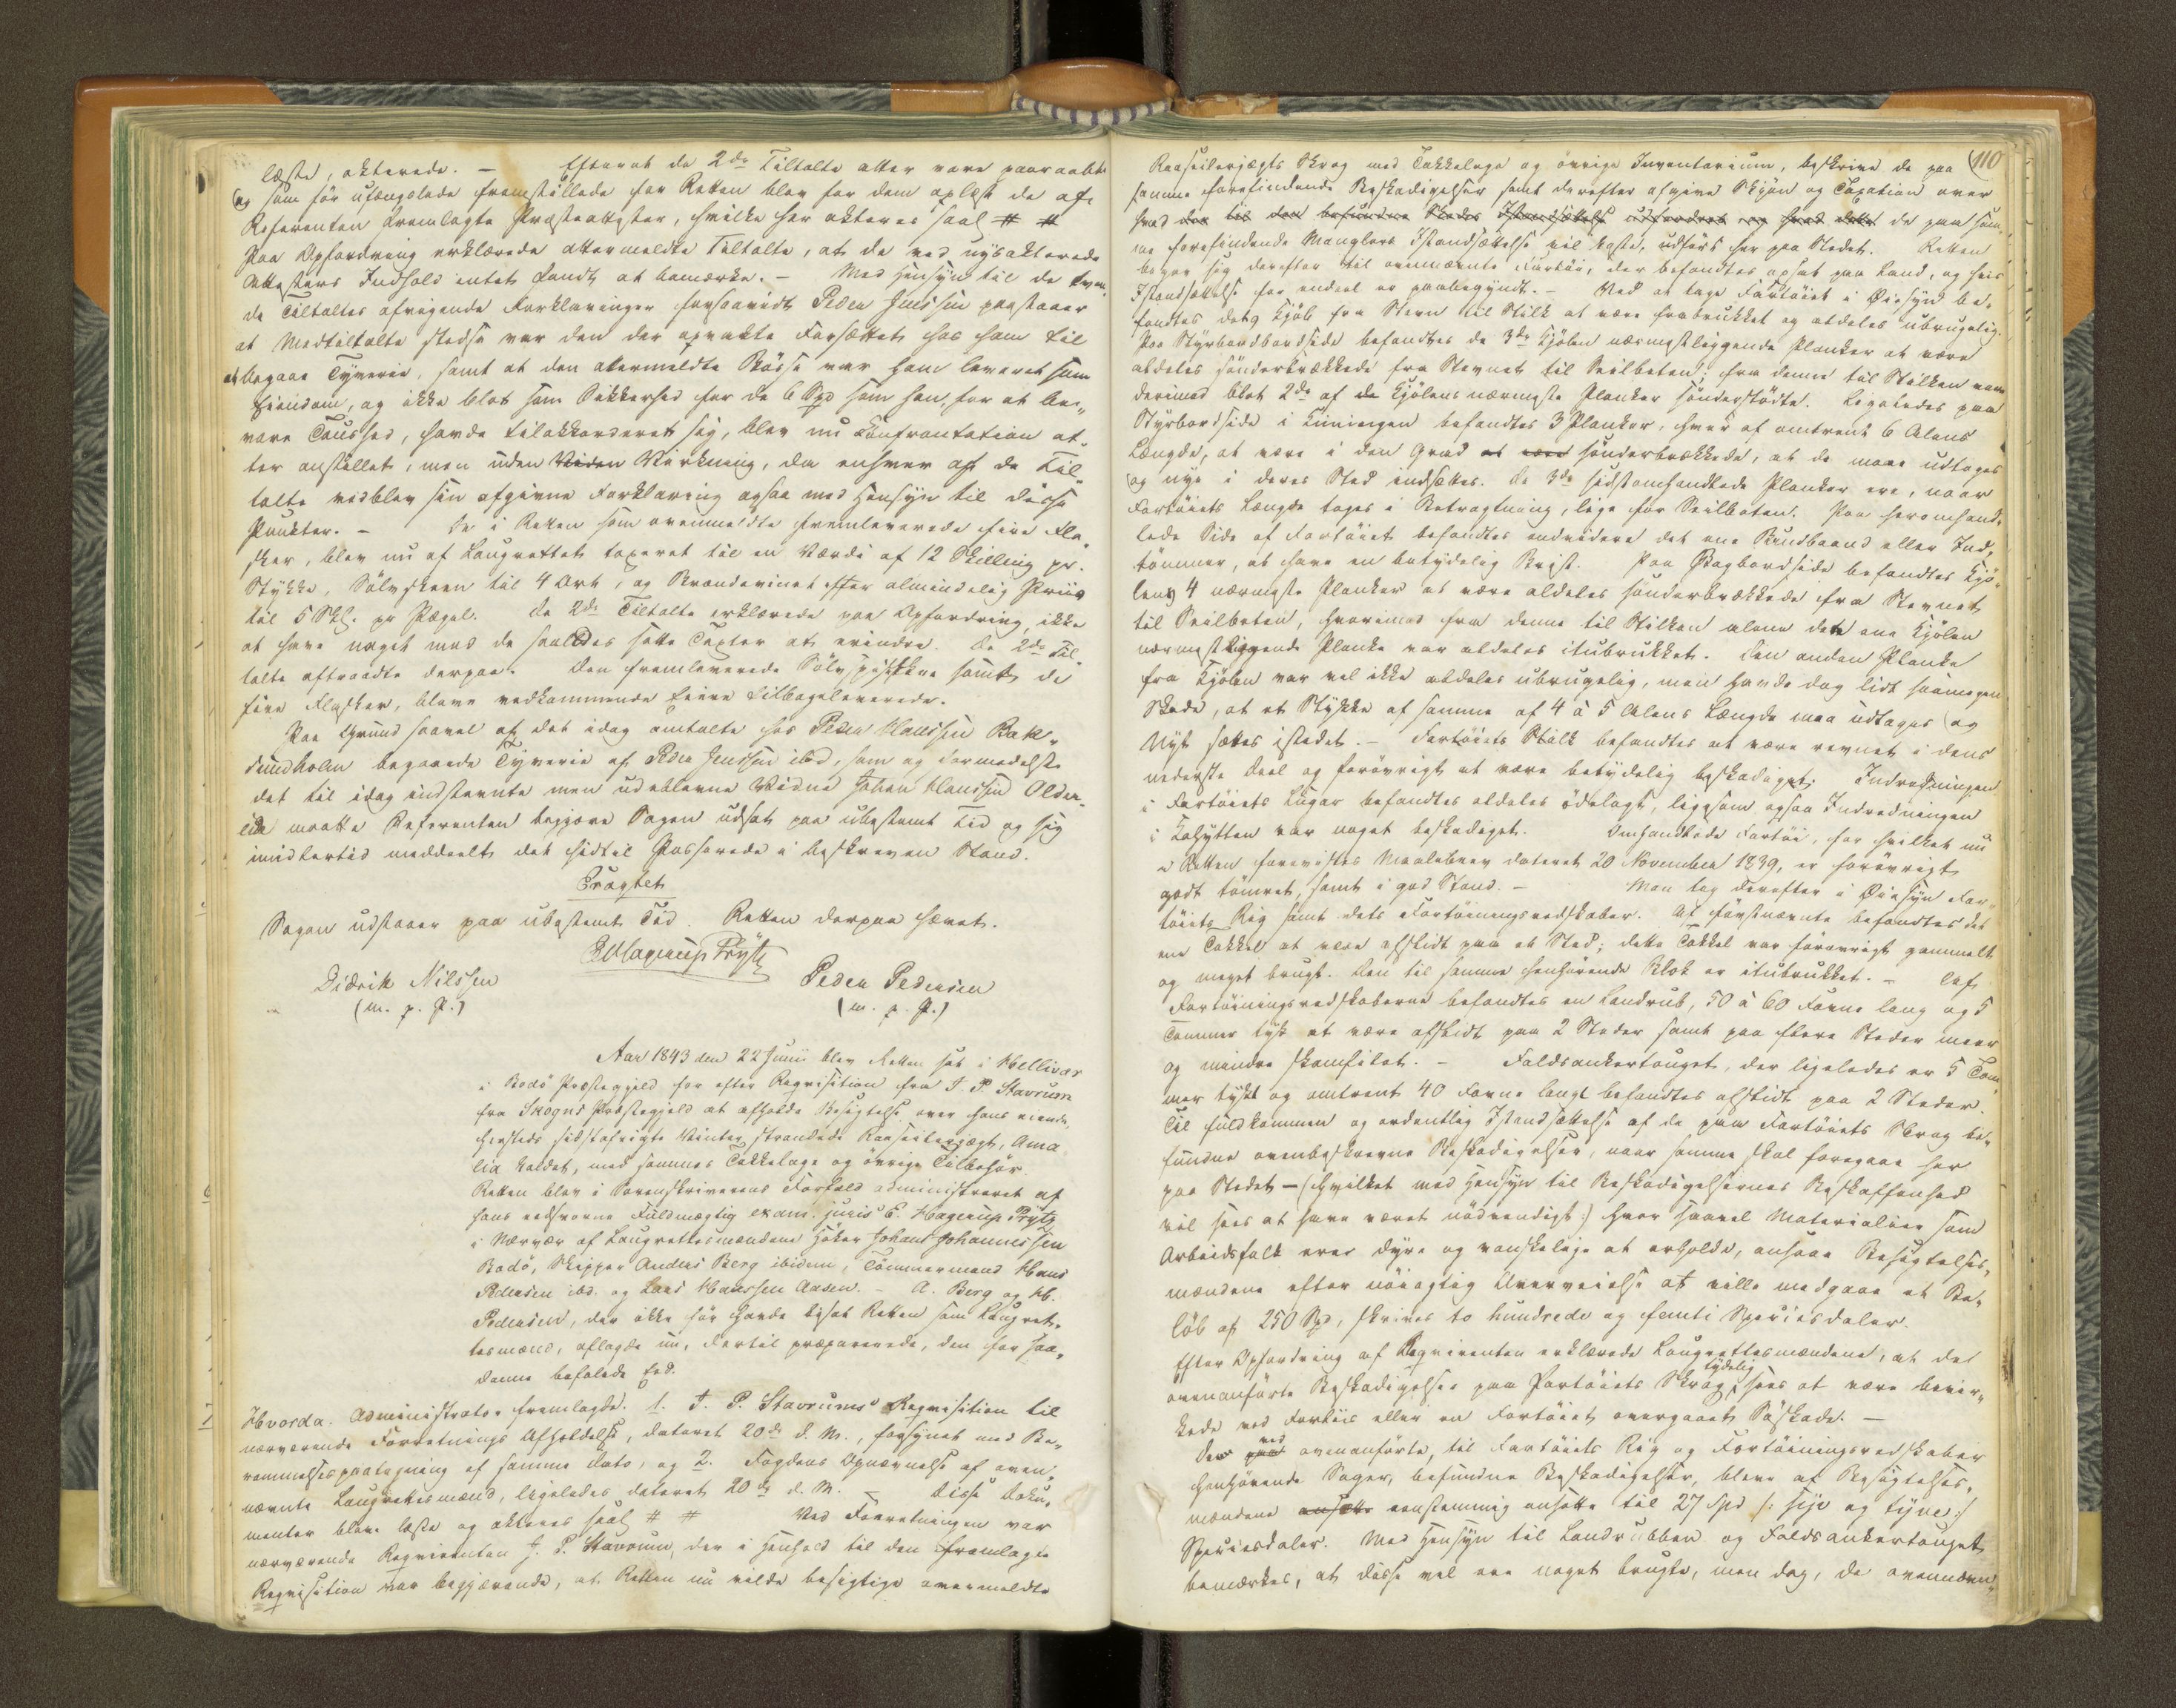 læste, akterede. — Efterat de 2de Tiltalte atter vare paaraabte
og som før ufængslede fremstillede for Retten blev for dem oplæst de af
Referenten fremlagte Præsteattester, hvilke her akteres saal # #
Paa Opfordring erklærede attermeldte Tiltalte, at de ved nysakterede
Attesters Indhold intet fandt at bemærke. — Med Hensyn til de tven,
de Tiltaltes afvigende Forklaringer forsaavidt Peder Jenssen paastaaer
at Medtiltalte stedse var den der opvakte Forsættet hos ham til
at begaae Tyverie, samt at den attermeldte Bøsse var ham leveret som
Eiendom, og ikke blot som Sikkerhed for de 6 Spd som han, for at be„
vare Taushed, havde tilakkorderet sig, blev nu Confrontation at„
ter anstillet, men uden Viden Virkning, da enhver af de Til„
talte vedblev sin afgivne Forklaring ogsaa med Hensyn til disse
Punkter. — De i Retten som ovenmeldte fremleverede fire Fla„
sker, blev nu af Laugrettet taxeret til en Værdi af 12 Skilling pr.
Stykke, Sølvskeen til 4 Ort, og Brændeviinet efter almindelig Priis
til 5 Skl. pr Pægel. De 2de Tiltalte erklærede paa Opfordring ikke
at have noget mod de saaledes satte Taxter at erindre. De 2de Til„
talte aftraadte derpaa. Den fremleverede Sølvspiseskee samt de
fire Flasker, bleve vedkommende Eiere tilbageleverede.
Paa Grund saavel af det idag omtalte hos Peder Hanssen Bak„
sundholm begaaede Tyverie af Peder Jenssen ibd, som og formedelst
det til idag indstevnte men udeblevne Vidne Johan Hanssen Alder„
lia maatte Referenten begjære Sagen udsat paa ubestemt Tid og sig
imidlertid meddeelt det hidtil Passerede i beskreven Stand.
Eragtet
Sagen udstaaer paa ubestemt Tid. Retten derpaa hævet.
E Hagerup Prytz
Didrik Nilssen Peder Pedersen
(m. p. P.) (m. p. P.)
Aar 1843 den 22 Junii blev Retten sat i Hellivær
i Bodø Præstegjeld for efter Reqvisition fra J. P. Stavrum
fra Skogns Præstegjeld at afholde Besigtelse over hans eiende,
hersteds sidstafvigte Vinter strandede Raaseilerjægt, Ama
lia kaldet, med sammes Takkelage og øvrige Tilbehør.
Retten blev i Sorenskriverens Forfald administreret af
hans edsvorne Fuldmægtig exam. juris E. Hagerup Prytz
i Nærvær af Laugrettesmændene Høker Johan Johannessen
Bodø, Skipper Anders Berg ibidem, Tømmermand Hans
Pedersen ibd. og Lars Hanssen Aasen. — A. Berg og H.
Pedersen, der ikke før havde besat Retten som Laugret„
tesmænd, aflagde nu, dertil præparerede, den for saa„
danne befalede Eed.
Hvorda. Administrator fremlagde. 1. J. P. Stavrums Reqvisition til
nærværende Forretnings Afholdelse, dateret 20de d. M., forsynet med Be„
rammelsespaategning af samme Dato, og 2. Fogdens Opnævnelse af oven„
nævnte Laugrettesmænd, ligeledes dateret 20de d. M. — Disse Doku„
menter bleve læste og akteres saal # # Ved Forretningen var
nærværende Reqvirenten J. P. Stavrum, der i Henhold til den fremlagte
Reqvisition var begjærende, at Retten nu vilde besigtige ovenmeldte
110
Raaseilerjægts Skrog med Takkelage og øvrige Inventarium, beskrive de paa
samme forefindende Beskadigelser samt derefter afgive Skjøn og Taxation over
hvad der til den befundne Skades Istandsættelse udfordres og hvad dette de paa sam„
me forefindende Manglers Istandsættelse vil koste, udført her paa Stedet. Retten
begav sig derefter til ovennævnte Fartøi, der befandtes opsat paa Land, og hvis
Istandsættelse for endeel er paabegyndt. — Ved at tage Fartøiet i Øiesyn be„
fandtes dets Kjøl fra Stevn til Stilk at være frabrukket og aldeles ubrugelig.
Paa Styrbordbordside befandtes de 3de Kjølen nærmestliggende Planker at være
aldeles sønderbrækkede fra Stevnet til Seilbeten; fra denne til Stilken vare
derimod blot 2de af de Kjølens nærmeste Planker sønderstødte. Ligeledes paa
Styrbordside i Kimingen befandtes 3 Planker, hver af omtrent 6 Alens
Længde, at være i den Grad at være sønderbrækkede, at de maae udtages
og nye i deres Sted indsættes. De 3de sidstomhandlede Planker ere, naar
Fartøiets Længde tages i Betragtning, lige for Seilbeten. Paa heromhand„
lede Side af Fartøiet befandtes endvidere det ene Bundbaand eller Ind„
tømmer, at have en betydelig Brist. Paa Bagbordside befandtes Kjø„
lens 4 nærmeste Planker at være aldeles sønderbrækkede fra Stevnet
til Seilbeten, hvorimod fra denne til Stilken alene den ene Kjølen
nærmestliggende Planke var aldeles itubrukket. Den anden Planke
fra Kjølen var vel ikke aldeles ubrugelig, men havde dog lidt saamegen
Skade, at et Stykke af samme af 4 à 5 Alens Længde maa udtages og
Nyt sættes istedet. — Fartøiets Stilk befandtes at være revnet i dens
nederste Deel og forøvrigt at være betydelig beskadiget. Indredningen
i Fartøiets Lugar befandtes aldeles ødelagt, ligesom ogsaa Indredningen
i Kahytten var noget beskadiget. Omhandlede Fartøi, for hvilket nu
i Retten forevistes Maalebrev dateret 20 November 1839, er forøvrigt
godt tømret, samt i god Stand. — Man tog derefter i Øiesyn Far„
tøiets Rig samt dets Fortøiningsredskaber. Af førstnævnte befandtes det
ene Takkel at være afslidt paa et Sted; dette Takkel var forøvrigt gammelt
og meget brugt. Den til samme henhørende Blok er itubrukket. — Af
Fortøiningsredskaberne befandtes en Landrub, 50 à 60 Favne lang og 5
Tommer tyk at være afslidt paa 2 Steder samt paa flere Steder meer
og mindre skamfilet. — Foldsankertouget, der ligeledes er 5 Tom„
mer tykt og omtrent 40 Favne langt befandtes afslidt paa 2 Steder.
Til fuldkommen og ordentlig Istandsættelse af de paa Fartøiets Skrog be„
fundne ovenbeskrevne Beskadigelser, naar samme skal foregaae her
paa Stedet — (hvilket med Hensyn til Beskadigelsernes Beskaffenhed
vil sees at have været nødvendigt:) hvor saavel Materialier som
Arbeidsfolk ere dyre og vanskelige at erholde, ansaae Besigtelses„
mændene efter nøiagtig Overveielse at ville medgaae et Be„
løb af 250 Spd, skriver to hundrede og femti Speciesdaler.
Efter Opfordring af Reqvirenten erklærede Laugrettesmændene, at det
tydelig
ovenanførte Beskadigelser paa Fartøiets Skrog sees at være bevir„
kede ved Forliis eller en Fartøiet overgaaet Søskade. —
ved
De paa ovenanførte, til Fartøiets Rig og Fortøiningsredskaber
henhørende Sager, befundne Beskadigelser, bleve af Besigtelses„
mændene ansatte eenstemmig ansatte til 27 Spd /: syv og tyve:/
Speciesdaler. Med Hensyn til Landrubben og Foldsankertouget
bemærkes, at disse vel ere noget brugte, men dog, da ovennævn„